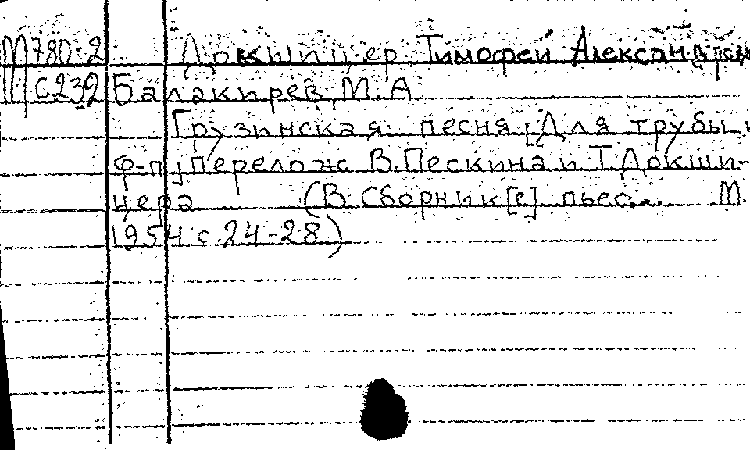 М780-2 Докшицер, Тимофей Александрович
С232 Балакирев, М.А.
Грузинская песня. [Для трубы и
ф-п.; перелож. В. Пескина и Т. Докши-
цера (В. Сборник[е] пьес... М.
1954 с. 24-28)